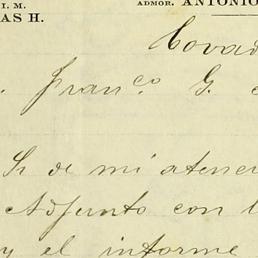 I. M.
AS H.
ADMOR. ANTONIO
Covad
Franco. G.
Sr de mi atenci
Adjunto con l
y el informe